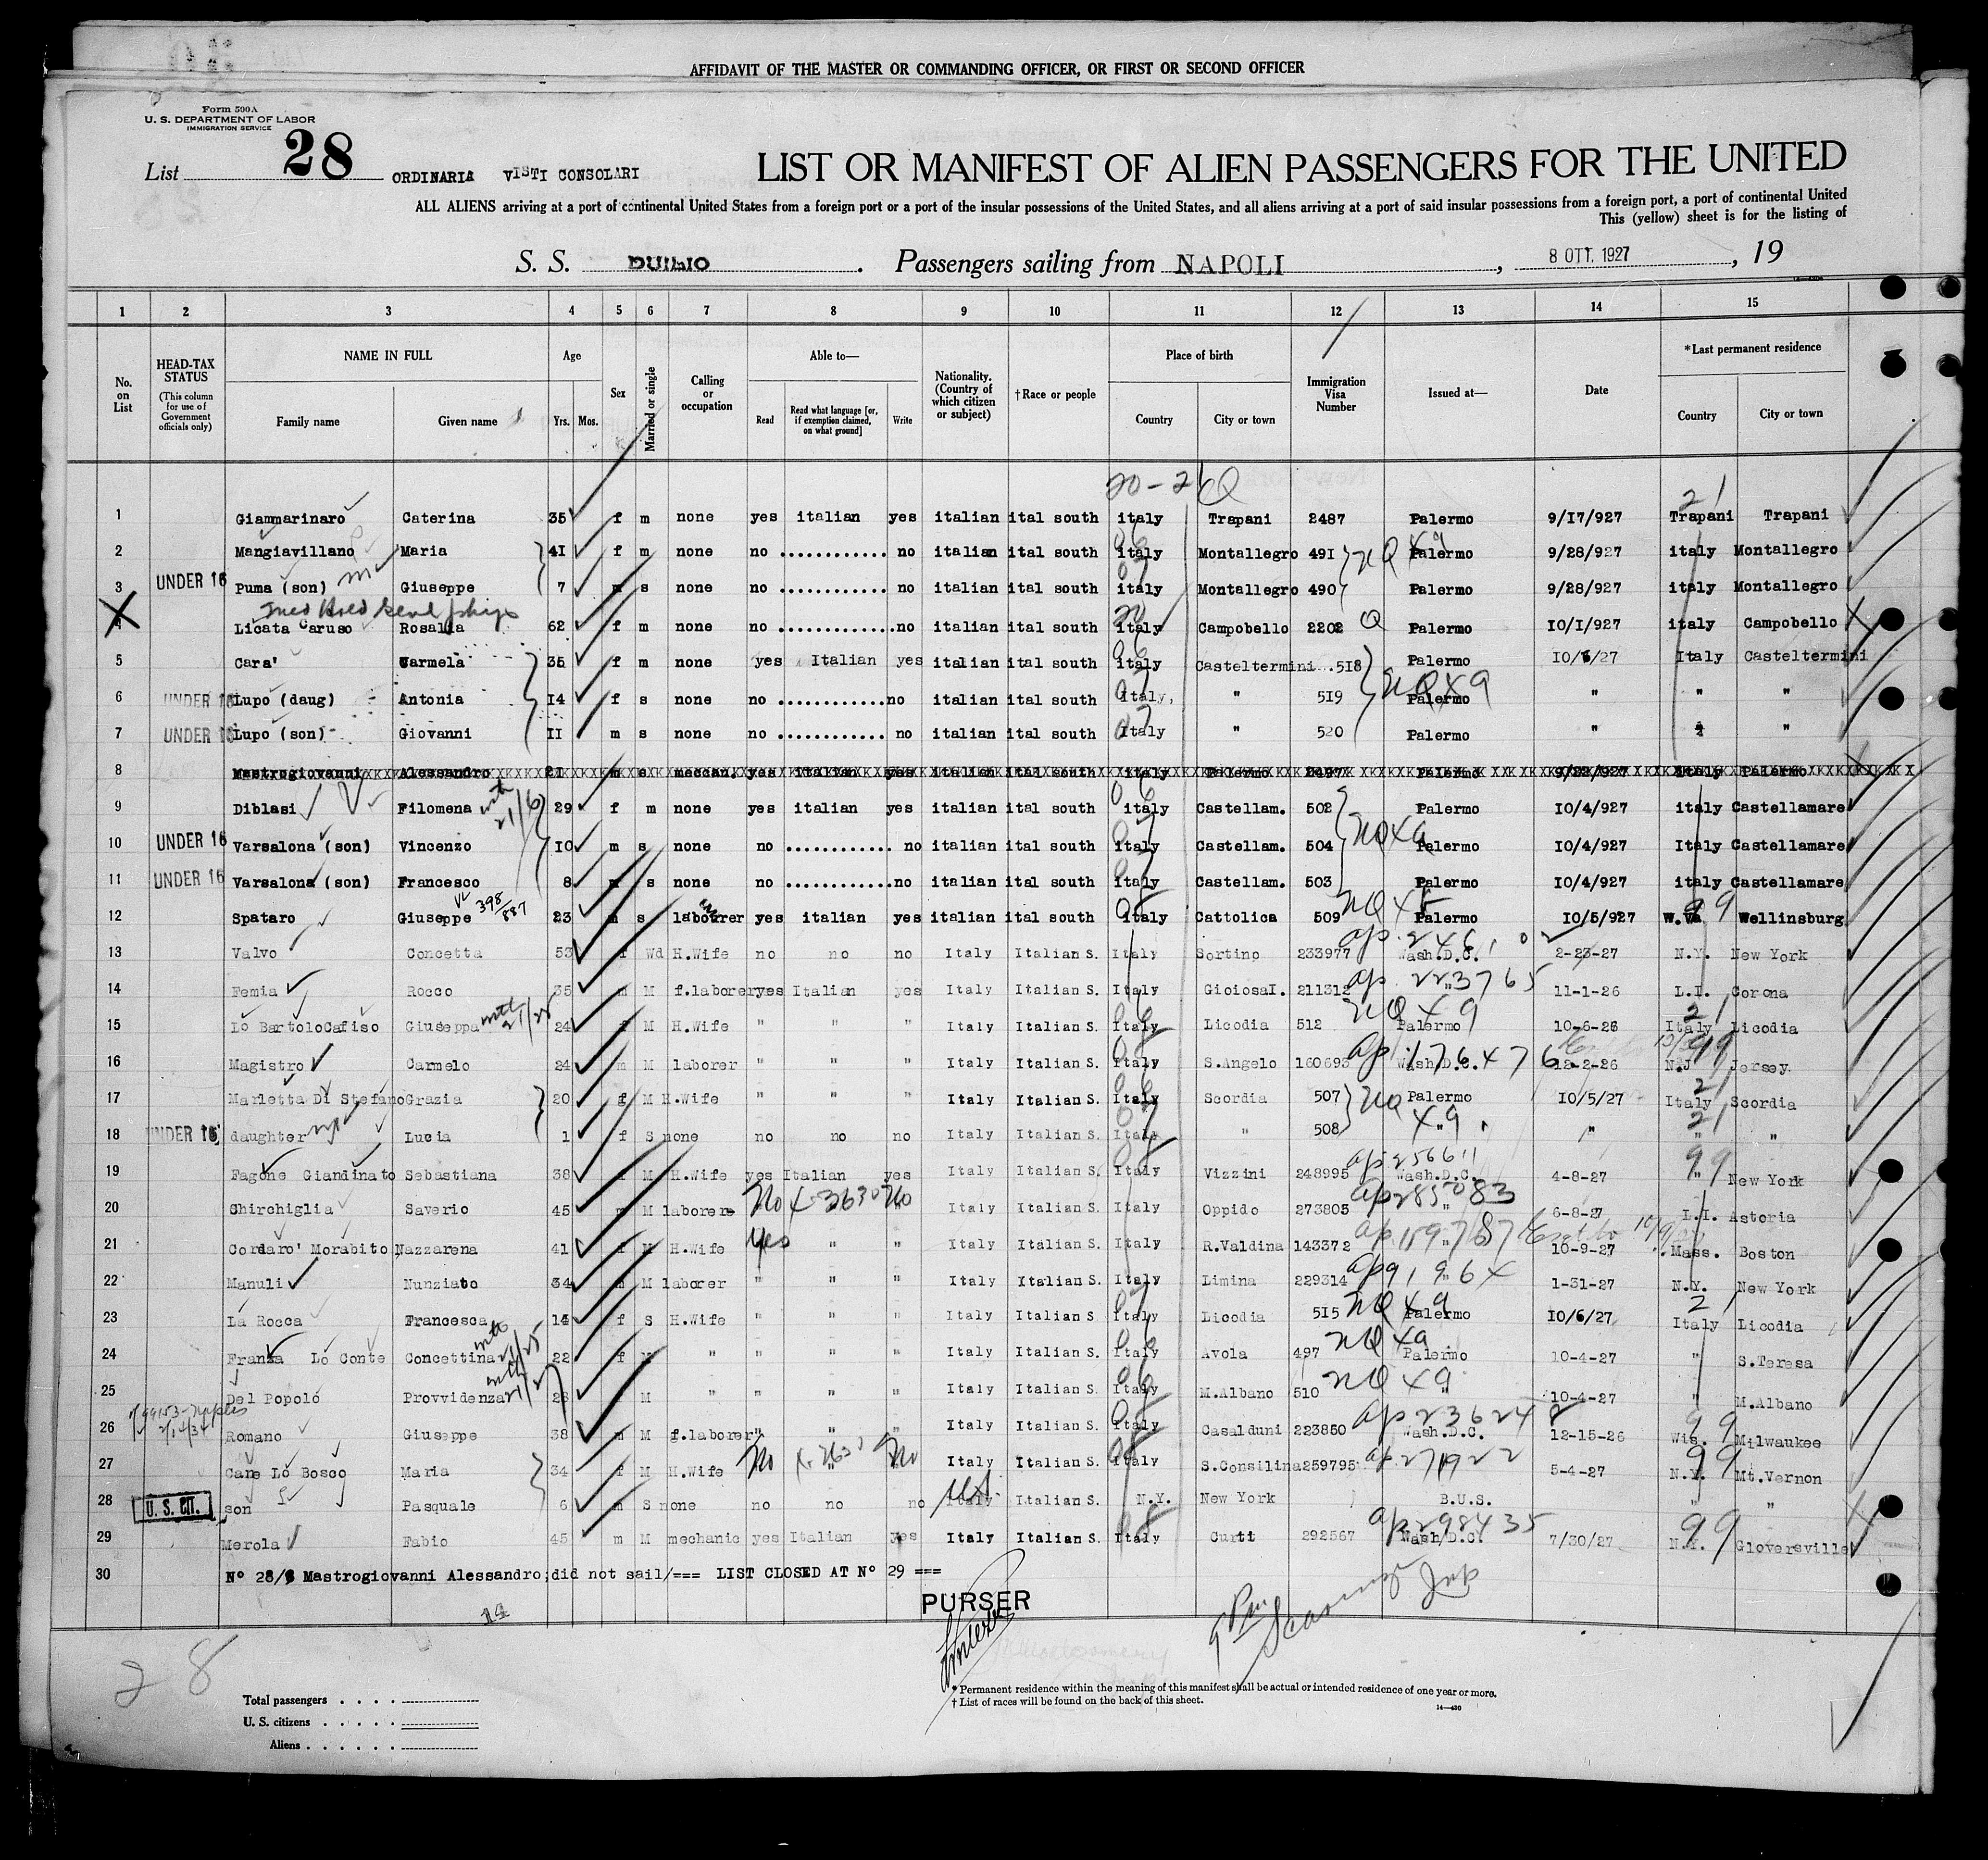 AFFIDAVIT OF THE MASTER OR COMMANDING OFFICER, OR FIRST OR SECOND OFFICER
Form 500A
U. S. DEPARTMENT OF LABOR
IMMIGRATION SERVICE
List 28 ORDINARIA VISTI CONSOLARI
LIST OR MANIFEST OF ALIEN PASSENGERS FOR THE UNITED
ALL ALIENS arriving at a port of continental United States from a foreign port or a port of the insular possessions of the United States, and all aliens arriving at a port of said insular possessions from a foreign port, a port of continental United
This (yellow) sheet is for the listing of
S. S. DUILIO . Passengers sailing from NAPOLI , 8 OTT. 1927 , 19
1 2 3 4 5 6 7 8 9 10 11 12 13 14 15
No. on List
HEAD-TAX STATUS
(This column for use of Government officials only)
NAME IN FULL
Family name Given name
Age
Yrs. Mos.
Sex
Married or single
Calling or occupation
Able to—
Read Read what language [or, if exemption claimed, on what ground] Write
Nationality. (Country of which citizen or subject)
†Race or people
Place of birth
Country City or town
Immigration Visa Number
Issued at—
Date
*Last permanent residence
Country City or town
20-2 Q 21
1 Giammarinaro Caterina 35 f m none yes italian yes italian ital south italy Trapani 2487 Palermo 9/17/927 Trapani Trapani
2 Mangiavillano Maria 41 f m none no ............ no italian ital south italy Montallegro 491 NQ x9 Palermo 9/28/927 italy Montallegro
3 UNDER 16 Puma (son) Giuseppe 7 m s none no ............ no italian ital south italy Montallegro 490 Palermo 9/28/927 italy Montallegro
4 Licata Caruso Rosalia 62 f m none no ............. no italian ital south italy Campobello 2202 Q Palermo 10/1/927 italy Campobello
5 Cara' Carmela 35 f m none yes Italian yes italian ital south italy Casteltermini ..518 Palermo 10/6/27 Italy Casteltermini
6 UNDER 16 Lupo (daug) Antonia 14 f s none no ............. no italian ital south Italy, " 519 NQ x9 Palermo " " "
7 UNDER 16 Lupo (son) Giovanni 11 m s none no ............ no italian ital south Italy " 520 Palermo " "
8 Mastrogiovanni Alessandro 21 m s meccan. yes italian yes italian ital south italy Palermo 2497 Palermo 9/22/927 italy Palermo
9 Diblasi Filomena 29 f m none yes italian yes italian ital south italy Castellam. 502 Palermo 10/4/927 italy Castellamare
10 UNDER 16 Varsalona (son) Vincenzo 10 m s none no ............ no italian ital south italy Castellam. 504 NQ x9 Palermo 10/4/927 Italy Castellamare
11 UNDER 16 Varsalona (son) Francesco 8 m s none no ............. no italian ital south italy Castellam. 503 Palermo 10/4/927 italy Castellamare
12 Spataro Giuseppe 398/887 23 m s labourer yes italian yes italian ital south italy Cattolica 509 NQ x5 Palermo 10/5/927 W.Va 99 Wellinsburg
13 Valvo Concetta 53 f Wd H.Wife no no no Italy Italian S. Italy Sortino 233977 Wash.D.C. 2-23-27 N.Y. New York
14 Femia Rocco 35 m M f.laborer yes Italian yes Italy Italian S. Italy GioiosaI. 211312 ap 223765 " 11-1-26 L.I. Corona
15 Lo BartoloCafiso Giuseppa 24 f M H.Wife " " " Italy Italian S. Italy Licodia 512 NQ x9 Palermo 10-6-26 Italy Licodia
16 Magistro Carmelo 24 m M laborer " " " Italy Italian S. Italy S.Angelo 160693 ap 176476 Wash.D.C. 12-2-26 N.J Jersey
17 Marletta Di Stefano Grazia 20 f M H.Wife " " " Italy Italian S. Italy Scordia 507 NQ Palermo 10/5/27 Italy Scordia
18 UNDER 16 daughter Lucia 1 f S none no no no Italy Italian S. Italy " 508 x9 " " " "
19 Fagone Giandinato Sebastiana 38 f M H.Wife yes Italian yes Italy Italian S. Italy Vizzini 248995 ap 256611 Wash.D.C. 4-8-27 99 " New York
20 Chirchiglia Saverio 45 m M laborer No No Italy Italian S. Italy Oppido 273805 ap 285083 " 6-8-27 L.I. Astoria
21 Cordaro' Morabito Nazzarena 41 f M H.Wife yes " " Italy Italian S. Italy R.Valdina 143372 10-9-27 Mass. Boston
22 Manuli Nunziato 34 m M laborer " " " Italy Italian S. Italy Limina 229314 " 1-31-27 N.Y. New York
23 La Rocca Francesca 14 f S H.Wife " " " Italy Italian S. Italy Licodia 515 NQ x9 Palermo 10/6/27 Italy Licodia
24 Franza Lo Conte Concettina 22 f M " " " " Italy Italian S. Italy Avola 497 NQ x9 Palermo 10-4-27 " S.Teresa
25 Del Popolo Provvidenza 28 f M " " " " Italy Italian S. Italy M.Albano 510 NQ x9 " 10-4-27 " M.Albano
26 Romano Giuseppe 38 m M f.laborer " " " Italy Italian S. Italy Casalduni 223850 ap 236248 Wash.D.C. 12-15-26 Wis. 99 Milwaukee
27 Cane Lo Bosco Maria 34 f M H.Wife No " No Italy Italian S. Italy S.Consilina 259795 ap 271922 5-4-27 N.Y. 99 Mt.Vernon
28 U. S. CIT. son Pasquale 6 m S none no no no Italy Italian S. N.Y. New York B.U.S. " "
29 Merola Fabio 45 m M mechanic yes Italian yes Italy Italian S. Italy Curti 292567 ap 298435 Wash.D.C. 7/30/27 N.Y. 99 Gloversville
30 N° 28/8 Mastrogiovanni Alessandro;did not sail/=== LIST CLOSED AT N° 29 ===
PURSER
14
28
* Permanent residence within the meaning of this manifest shall be actual or intended residence of one year or more.
† List of races will be found on the back of this sheet.
14—430
Total passengers . . . .
U. S. citizens . . . . .
Aliens . . . . . .